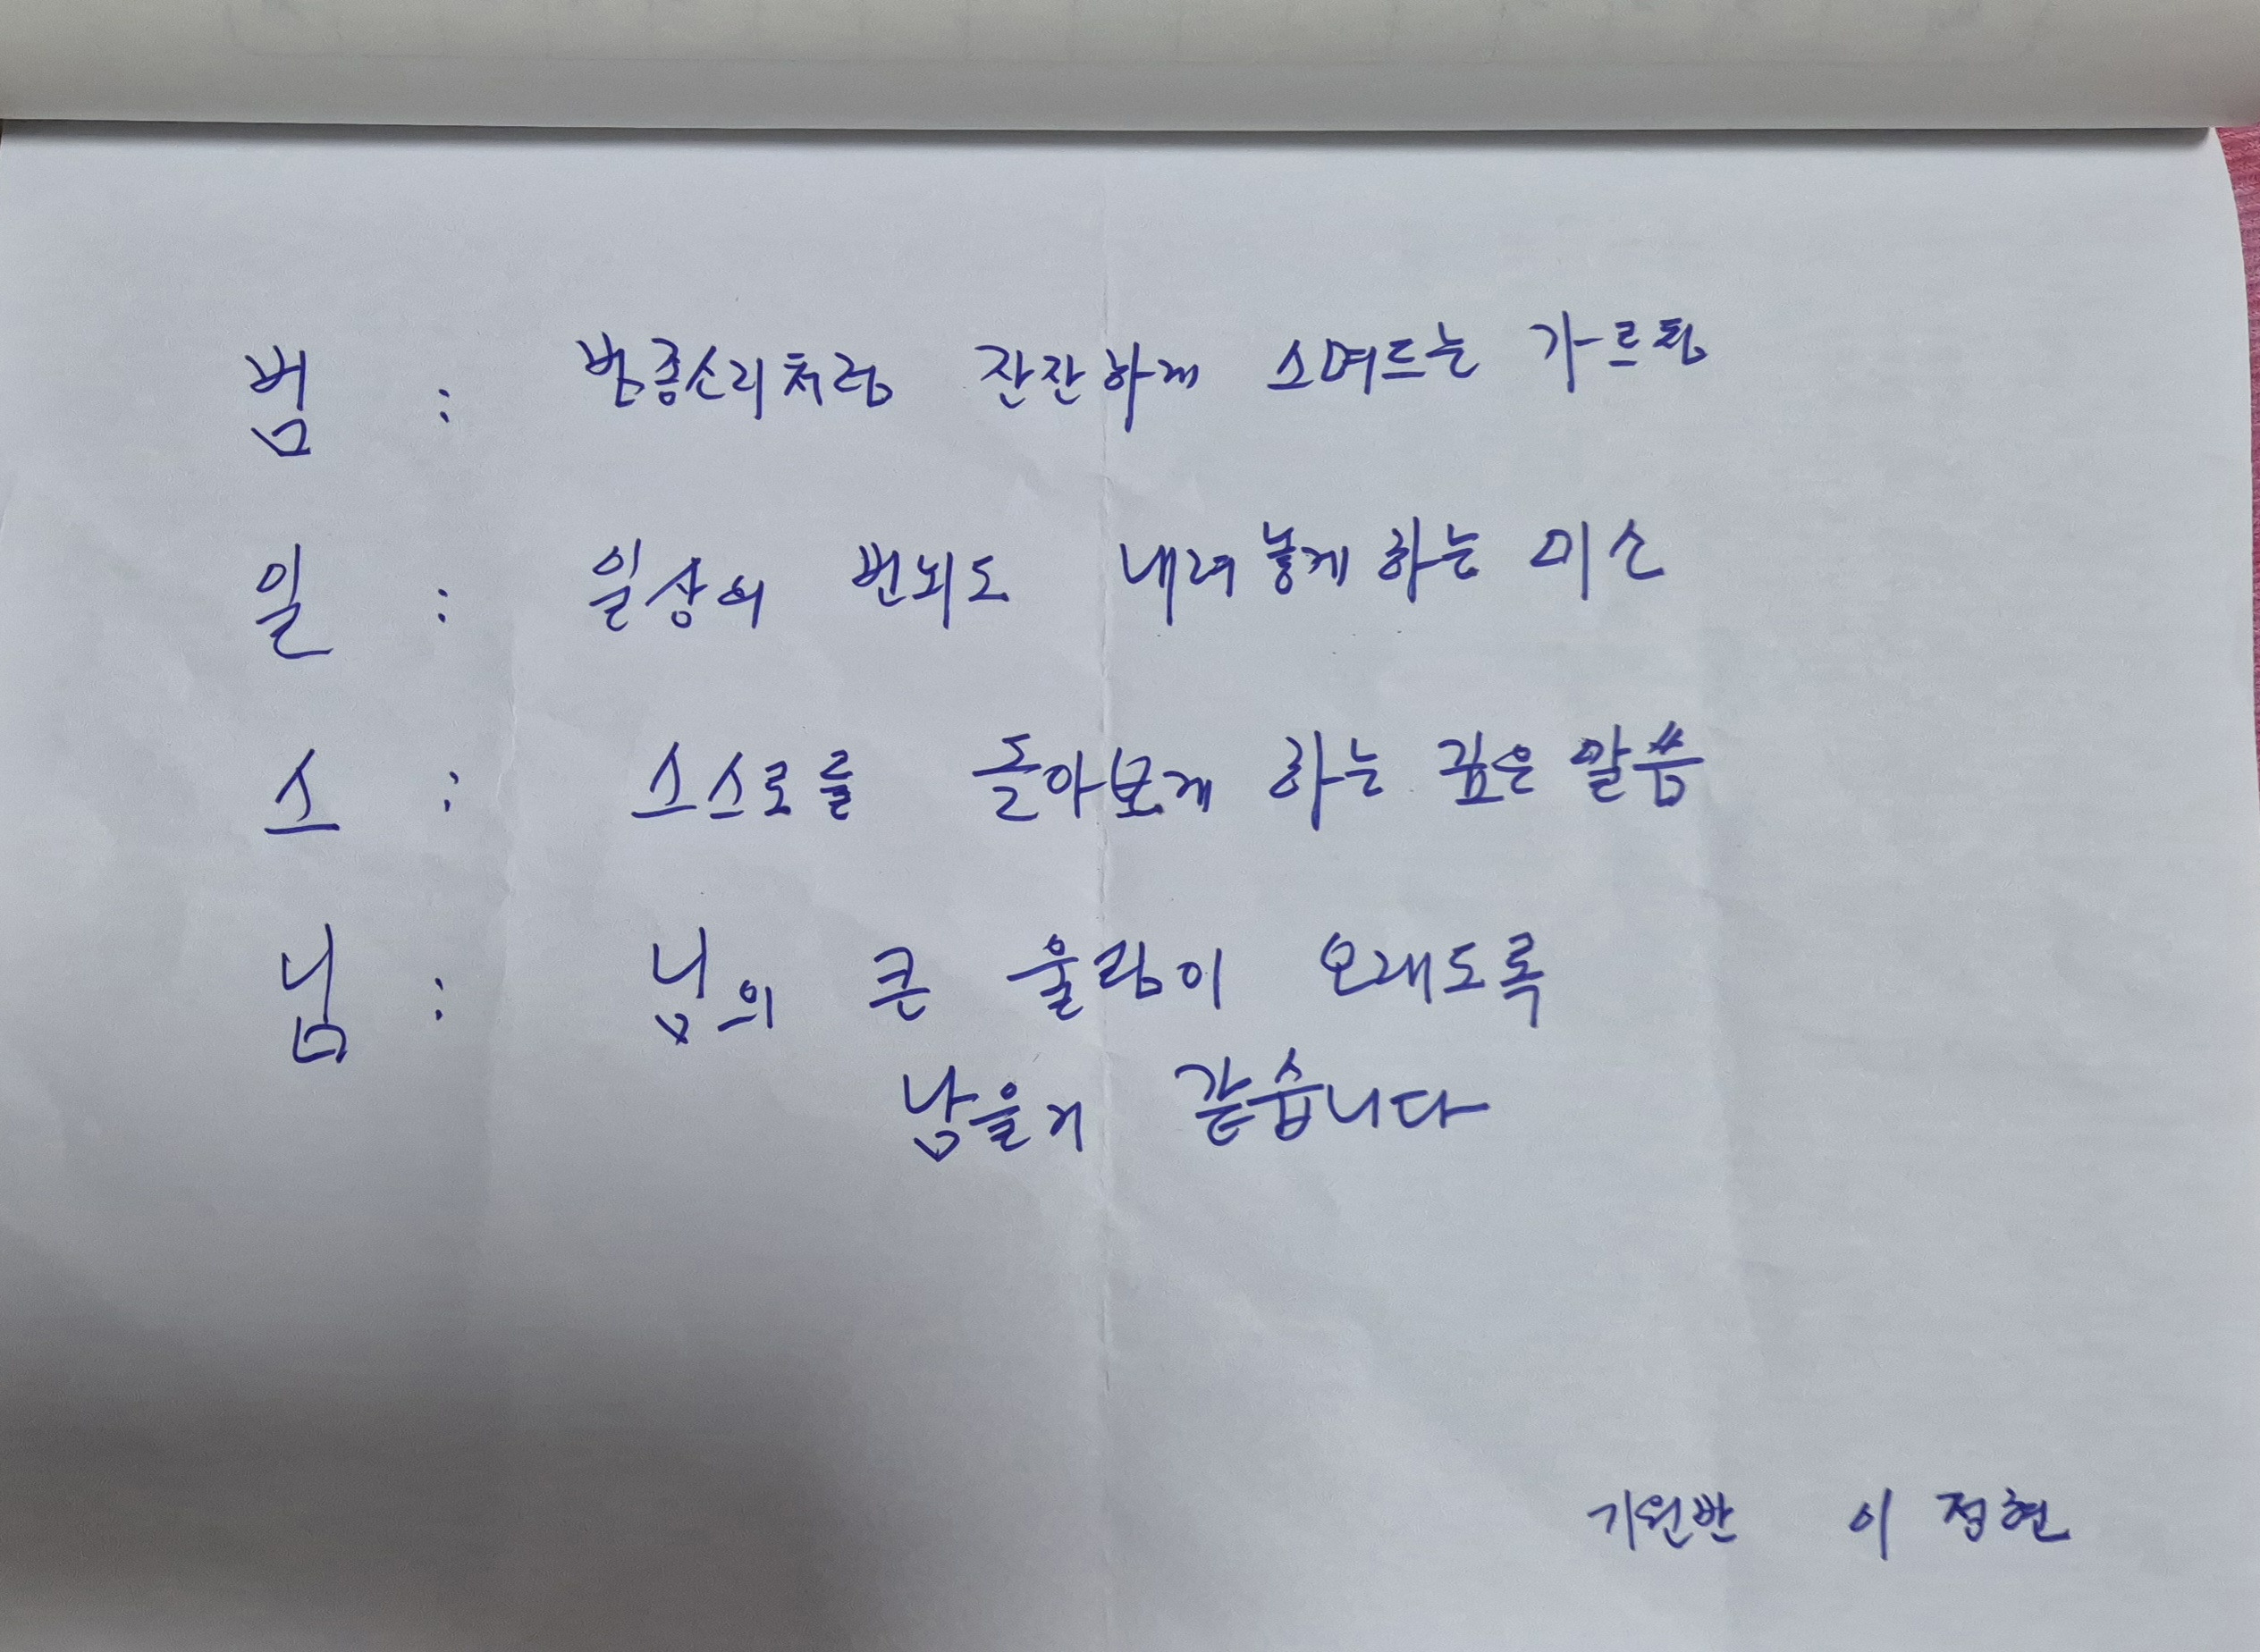 범 : 범종소리처럼 잔잔하게 스며드는 가르침
일 : 일상의 번뇌도 내려놓게 하는 미소
스 : 스스로를 돌아보게 하는 깊은 말씀
님 : 님의 큰 울림이 오래도록
남을거 같습니다
기원반 이정현